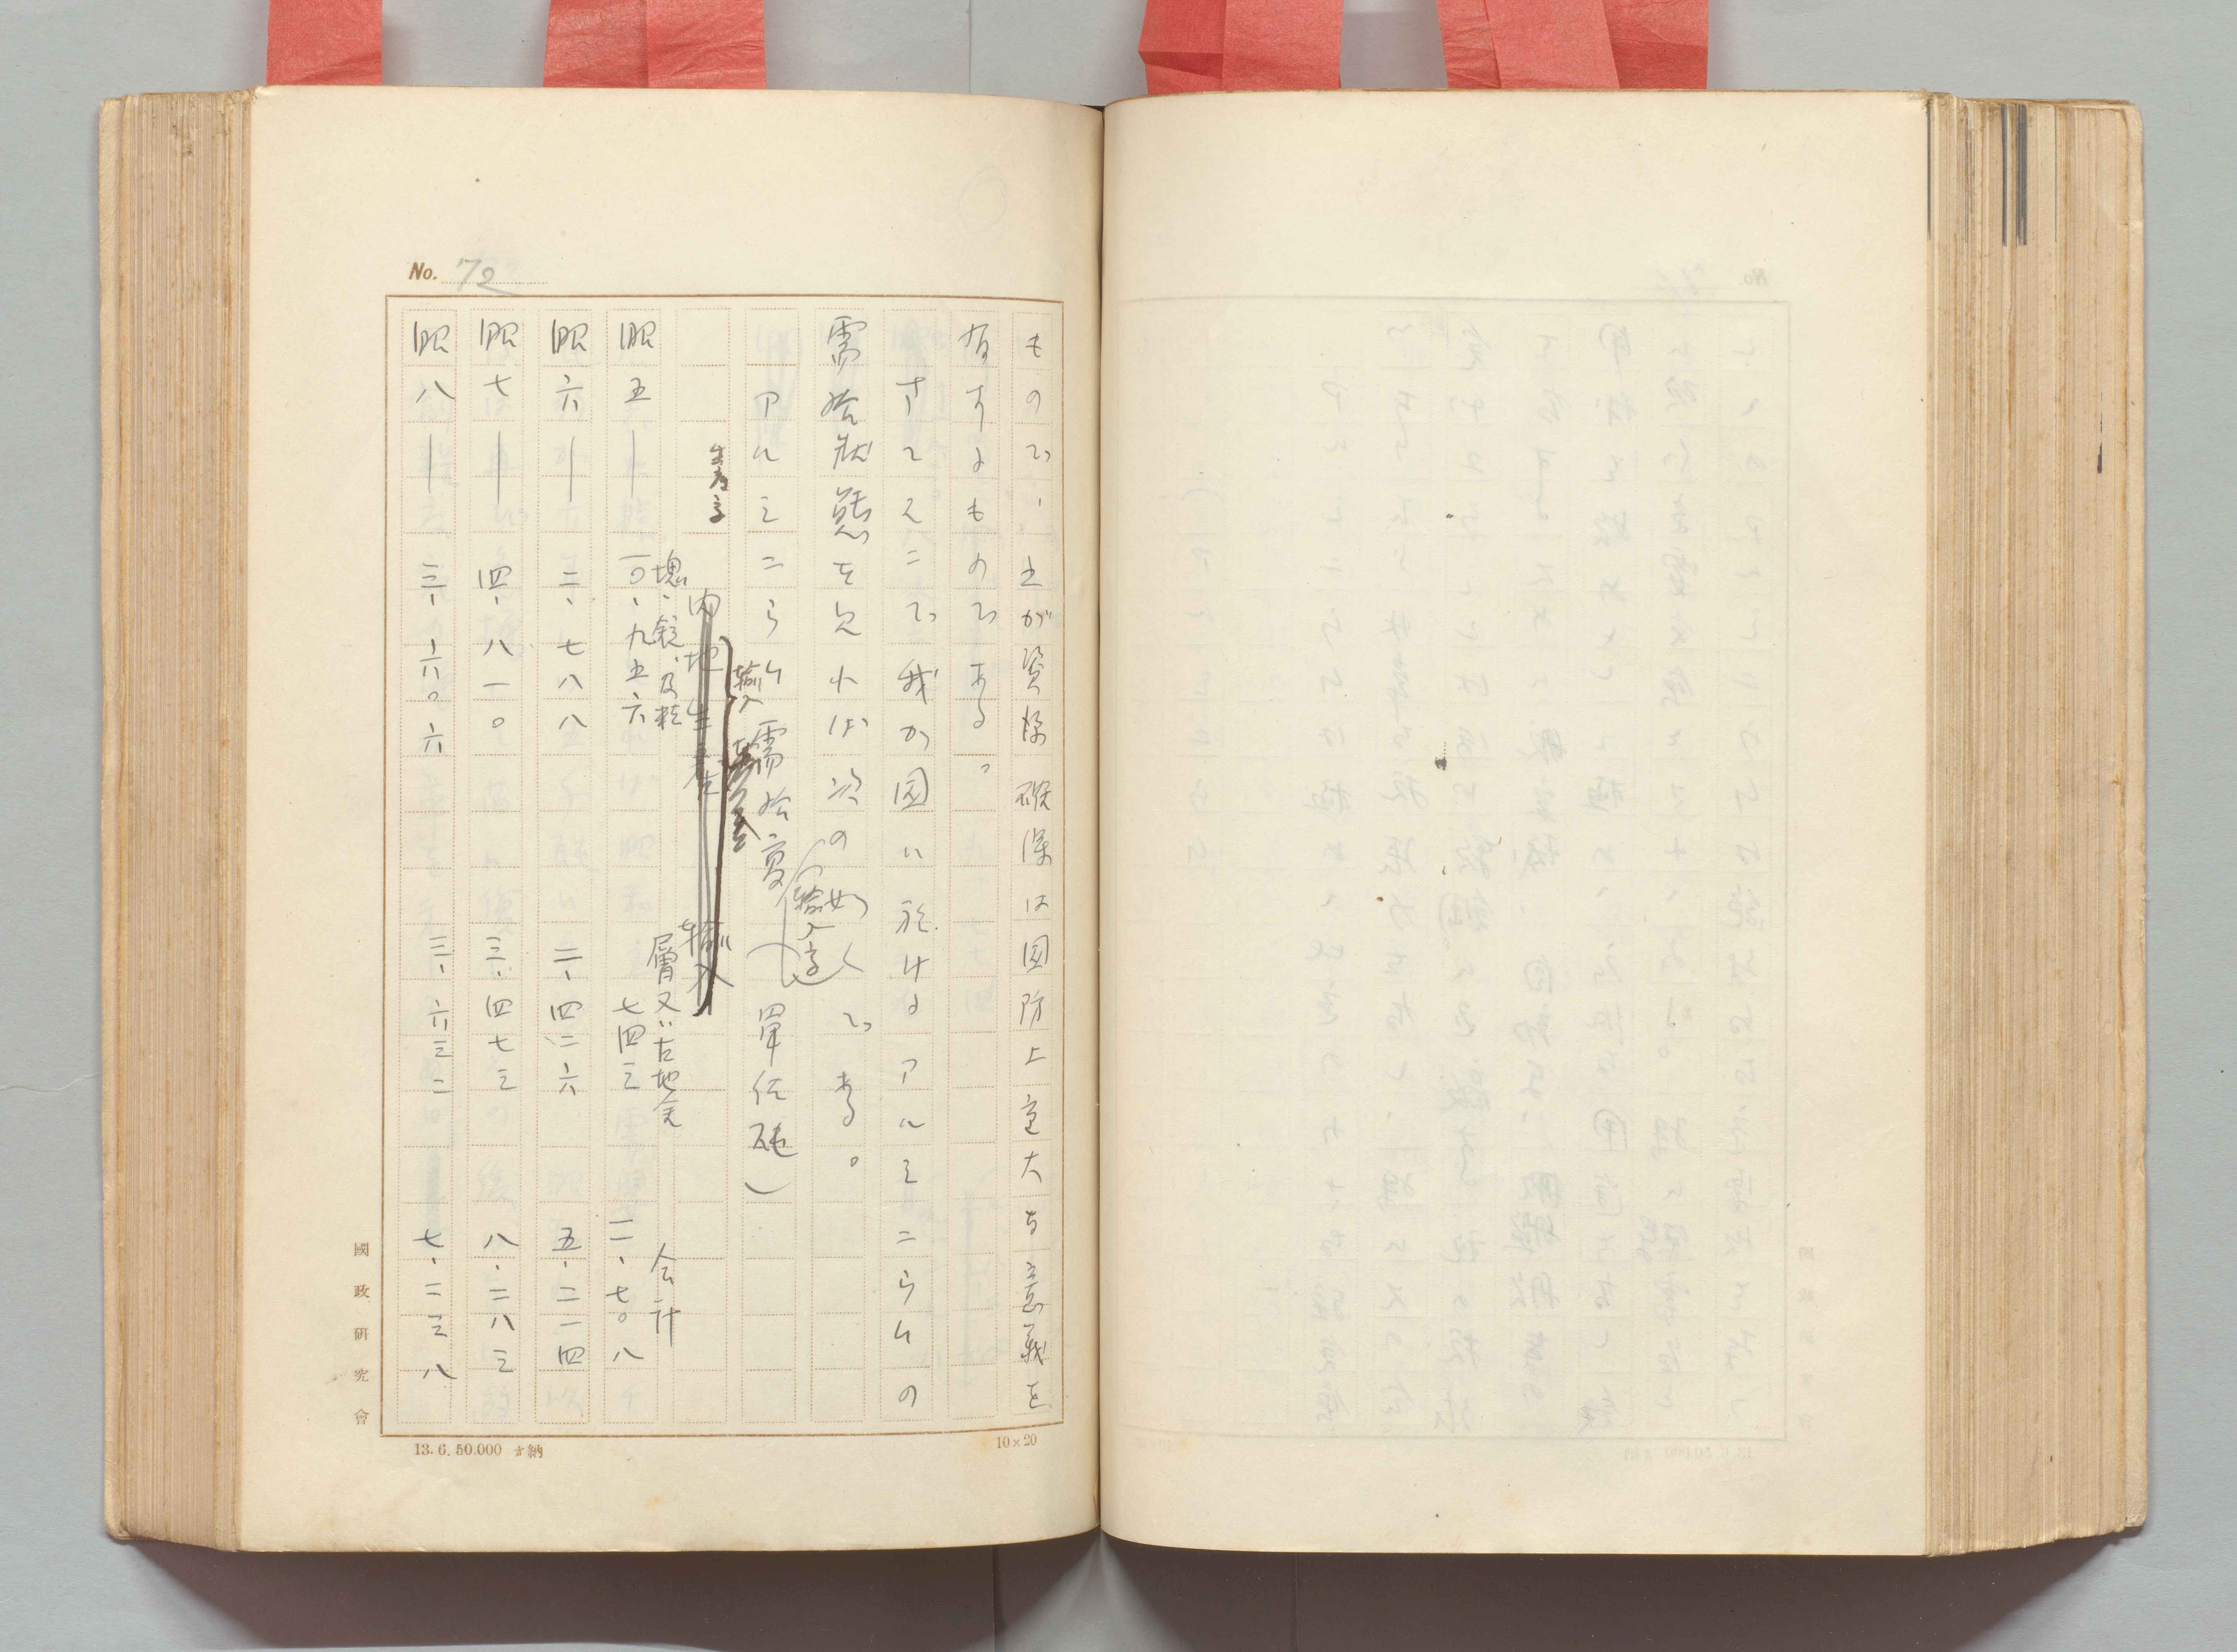 No. 72
もので、之が資源確保は国防上重大な意義を
有するものである。
さてここで我が国に於けるアルミニウムの
需給状態を見れば次の如くである。
アルミニウム需給高（単位瓲）
輸入高
生産高
輸入
内地生産 輸入
塊、錠、及粒 屑又ハ古地金 合計
昭五── 一〇、九五六 七四三 一一、七〇八
昭六── 二、七八八 二、四二六 五、二一四
昭七── 四、八一〇 三、四七三 八、二八三
昭八── 三、六〇六 三、六三二 七、二三八
國政研究會
13. 6. 50.000 納
10×20